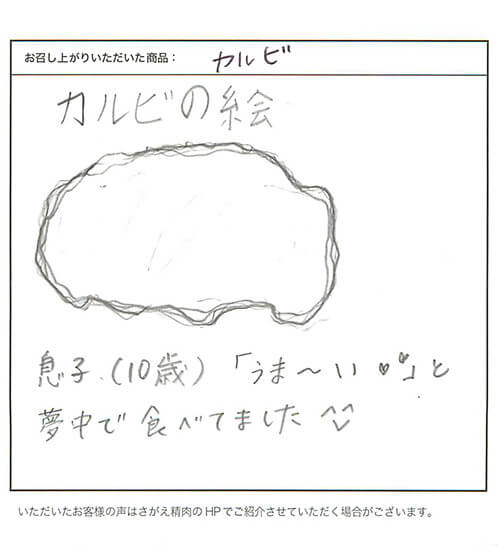 お召し上がりいただいた商品： カルビ
カルビの絵
息子(10歳)「うま〜い♥♥」と
夢中で食べてました ^^
いただいたお客様の声はさがえ精肉のHPでご紹介させていただく場合がございます。